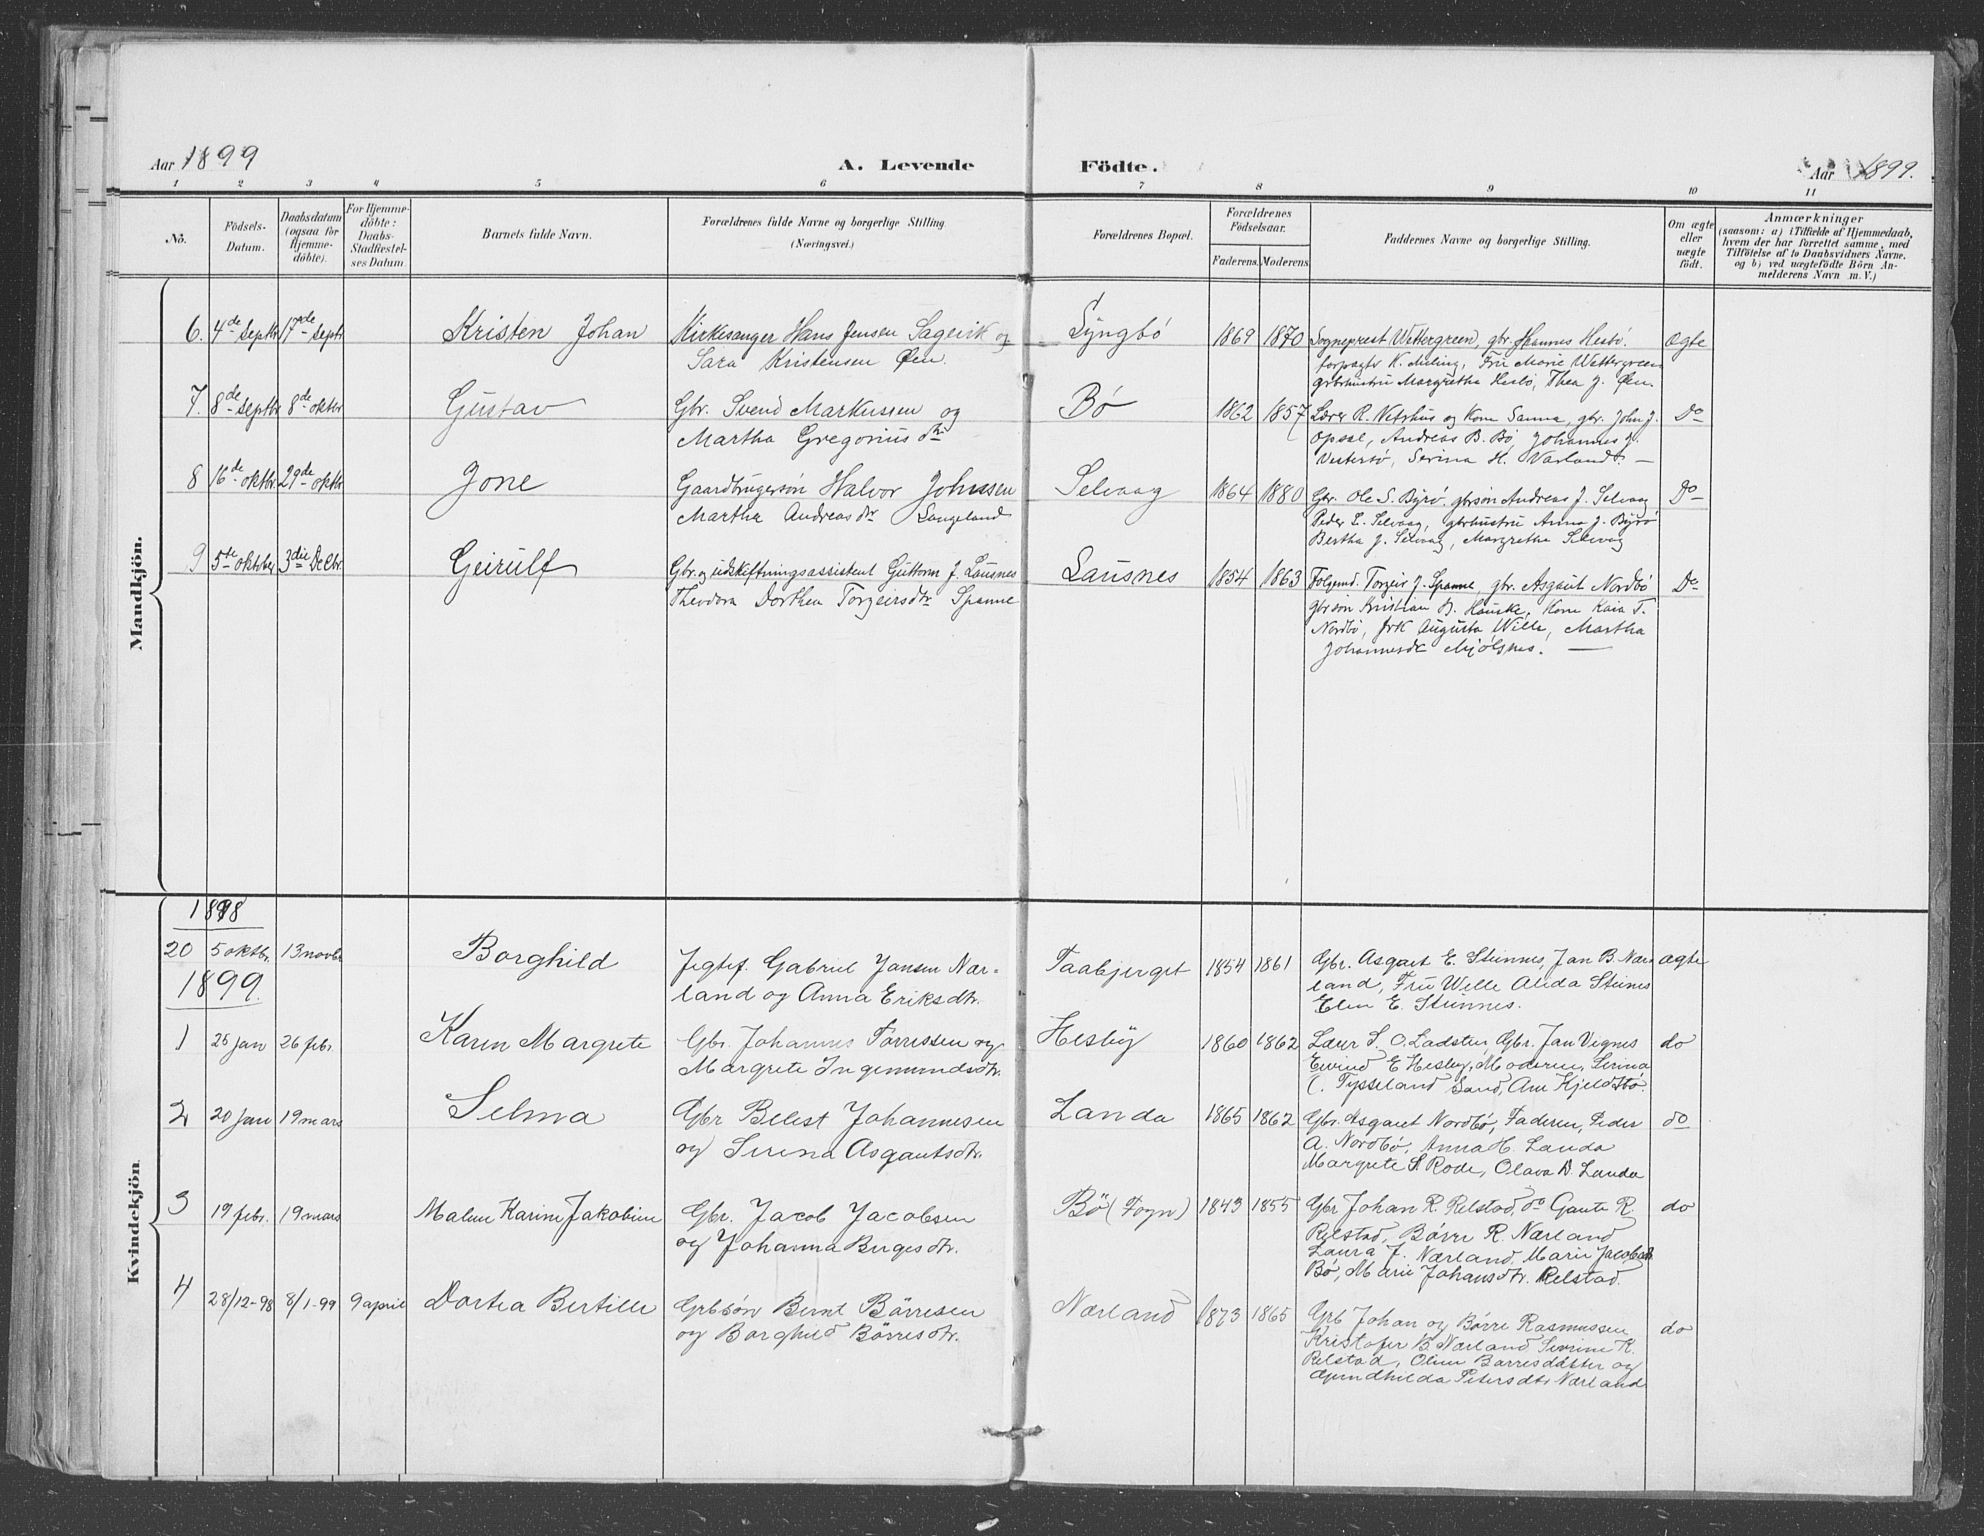 Aar 1899
A. Levende Födte.
Aar 1899.
1 2 3 4 5 6 7 8 9 10 11
No.
Födsels-
Datum.
Daabsdatum
(ogsaa for
Hjemme-
döbte).
For Hjemme-
döbte:
Daabs-
Stadfæstel-
ses Datum
Barnets fulde Navn.
Forældrenes fulde Navne og borgerlige Stilling.
(Næringsvei.)
Forældrenes Bopæl.
Forældrenes
Födselsaar.
Faderens. Moderens.
Faddernes Navne og borgerlige Stilling.
Om ægte
eller
uægte
født.
Anmærkninger
(saasom: a) i Tilfælde af Hjemmedaab,
hvem der har forrettet samme, med
Tilföielse af to Daabsvidners Navne.
og b) ved uægtefödte Börn An-
melderens Navn m. V.)
Mandkjön.
6. 4de Septbr 17de Septr Kristen Johan
Kirkesanger Hans Jensen Sagevik og
Sara Kristensen Øen.
Syngbø 1869 1870
Sogneprest Wettergreen, gbr. Hannes Hesbø.
forpagter K. Meling, Fru Marie Wettergreen
gbrhustru Margretha Hesbø, Thea J. Øen.
Ægte
7. 8de Septbr 8de oktbr Gustav
Gbr. Svend Markussen og
Martha Gregoriusdtr
Bø 1862 1857
Lærer R. Netshus og Kone Sanna, gbr. John J.
Opsal, Andreas B. Bø, Johannes J.
Vestersø, Serina H. Varland. —
Do
8 16de oktbr. 29de oktbr Jone
Gaardbrugersøn Halvor Johnsen
Martha Andreasdtr Langeland
Selvaag 1864 1880
Gbr. Ole S. Byrø, gbrsøn Andreas J. Selvaag
Peder L. Selvaag, gbrhustru Anna J. Byrø
Bertha J. Selvaag, Margretha Selvaag
Do
9 5te oktober 3die Decbr. Geirulf
Gbr. og udskiftningsassistent Guttorm J. Lausnes
Theodora Dorthea Torgeirsdtr Spanne
Lausnes 1854 1863
Folgemd. Torgeir J. Spanne, gbr. Asgaut Nordbø
gbrsøn Kristian B. Hauske, Kone Kaia T.
Nordbø, frk Augusta Wille, Martha
Johannesdtr Mjølsnes. —
Do
Kvindekjön.
1898
20 5 oktbr. 13 novbr Borghild
Jegtef. Gabriel Jansen Nær-
land og Anna Eriksdtr.
Taabjerget 1854 1861
Gbr. Asgaut E. Steinnes, Jan B. Nær
land, Fru Wille Alida Steines
Elen E. Steinnes.
ægte
1899.
1 25 jan 26 febr. Karen Margrete
Gbr. Johannes Tørressen og
Margrete Ingemundsdtr.
Hesby 1860 1862
Lærer S. O. Ladstein Gbr. Jan Vignes
Eivind E Hesby, Moderen, Serina
C. Tysseland Sand, Ane Kjeldstø.
do
2 20 jan 19 mars Selma
Gbr Belest Johannesen
og Serena Asgautsdtr.
Landa 1865 1862
Gbr. Asgaut Nordbø, Faderen, Peder
A. Nordbø, Anna H. Landa
Margrete S. Rode, Olava D. Landa
do
3 19 febr. 19 mars Malene Karine Jakobine
Gbr. Jacob Jacobsen
og Johanna Birgesdtr.
Bø (Fogn) 1843 1855
Gbr Johan R. Relstad, do Gaute R.
Relstad, Børre R. Nærland
Laura J. Nærland, Marie Jacobsdtr.
Bø, Marie Johansdtr. Relstad.
do
4 28/12-98 8/1-99 9 april Dortea Bertille
Grbsøn Bernt Börresen
og Borghild Börresdtr.
Nærland 1873 1865
Grb Johan og Børre Rasmussen
Kristofer B. Nærland Severine K.
Relstad, Oline Børresdatter og
Gundhilda Petersdtr Nærland
do